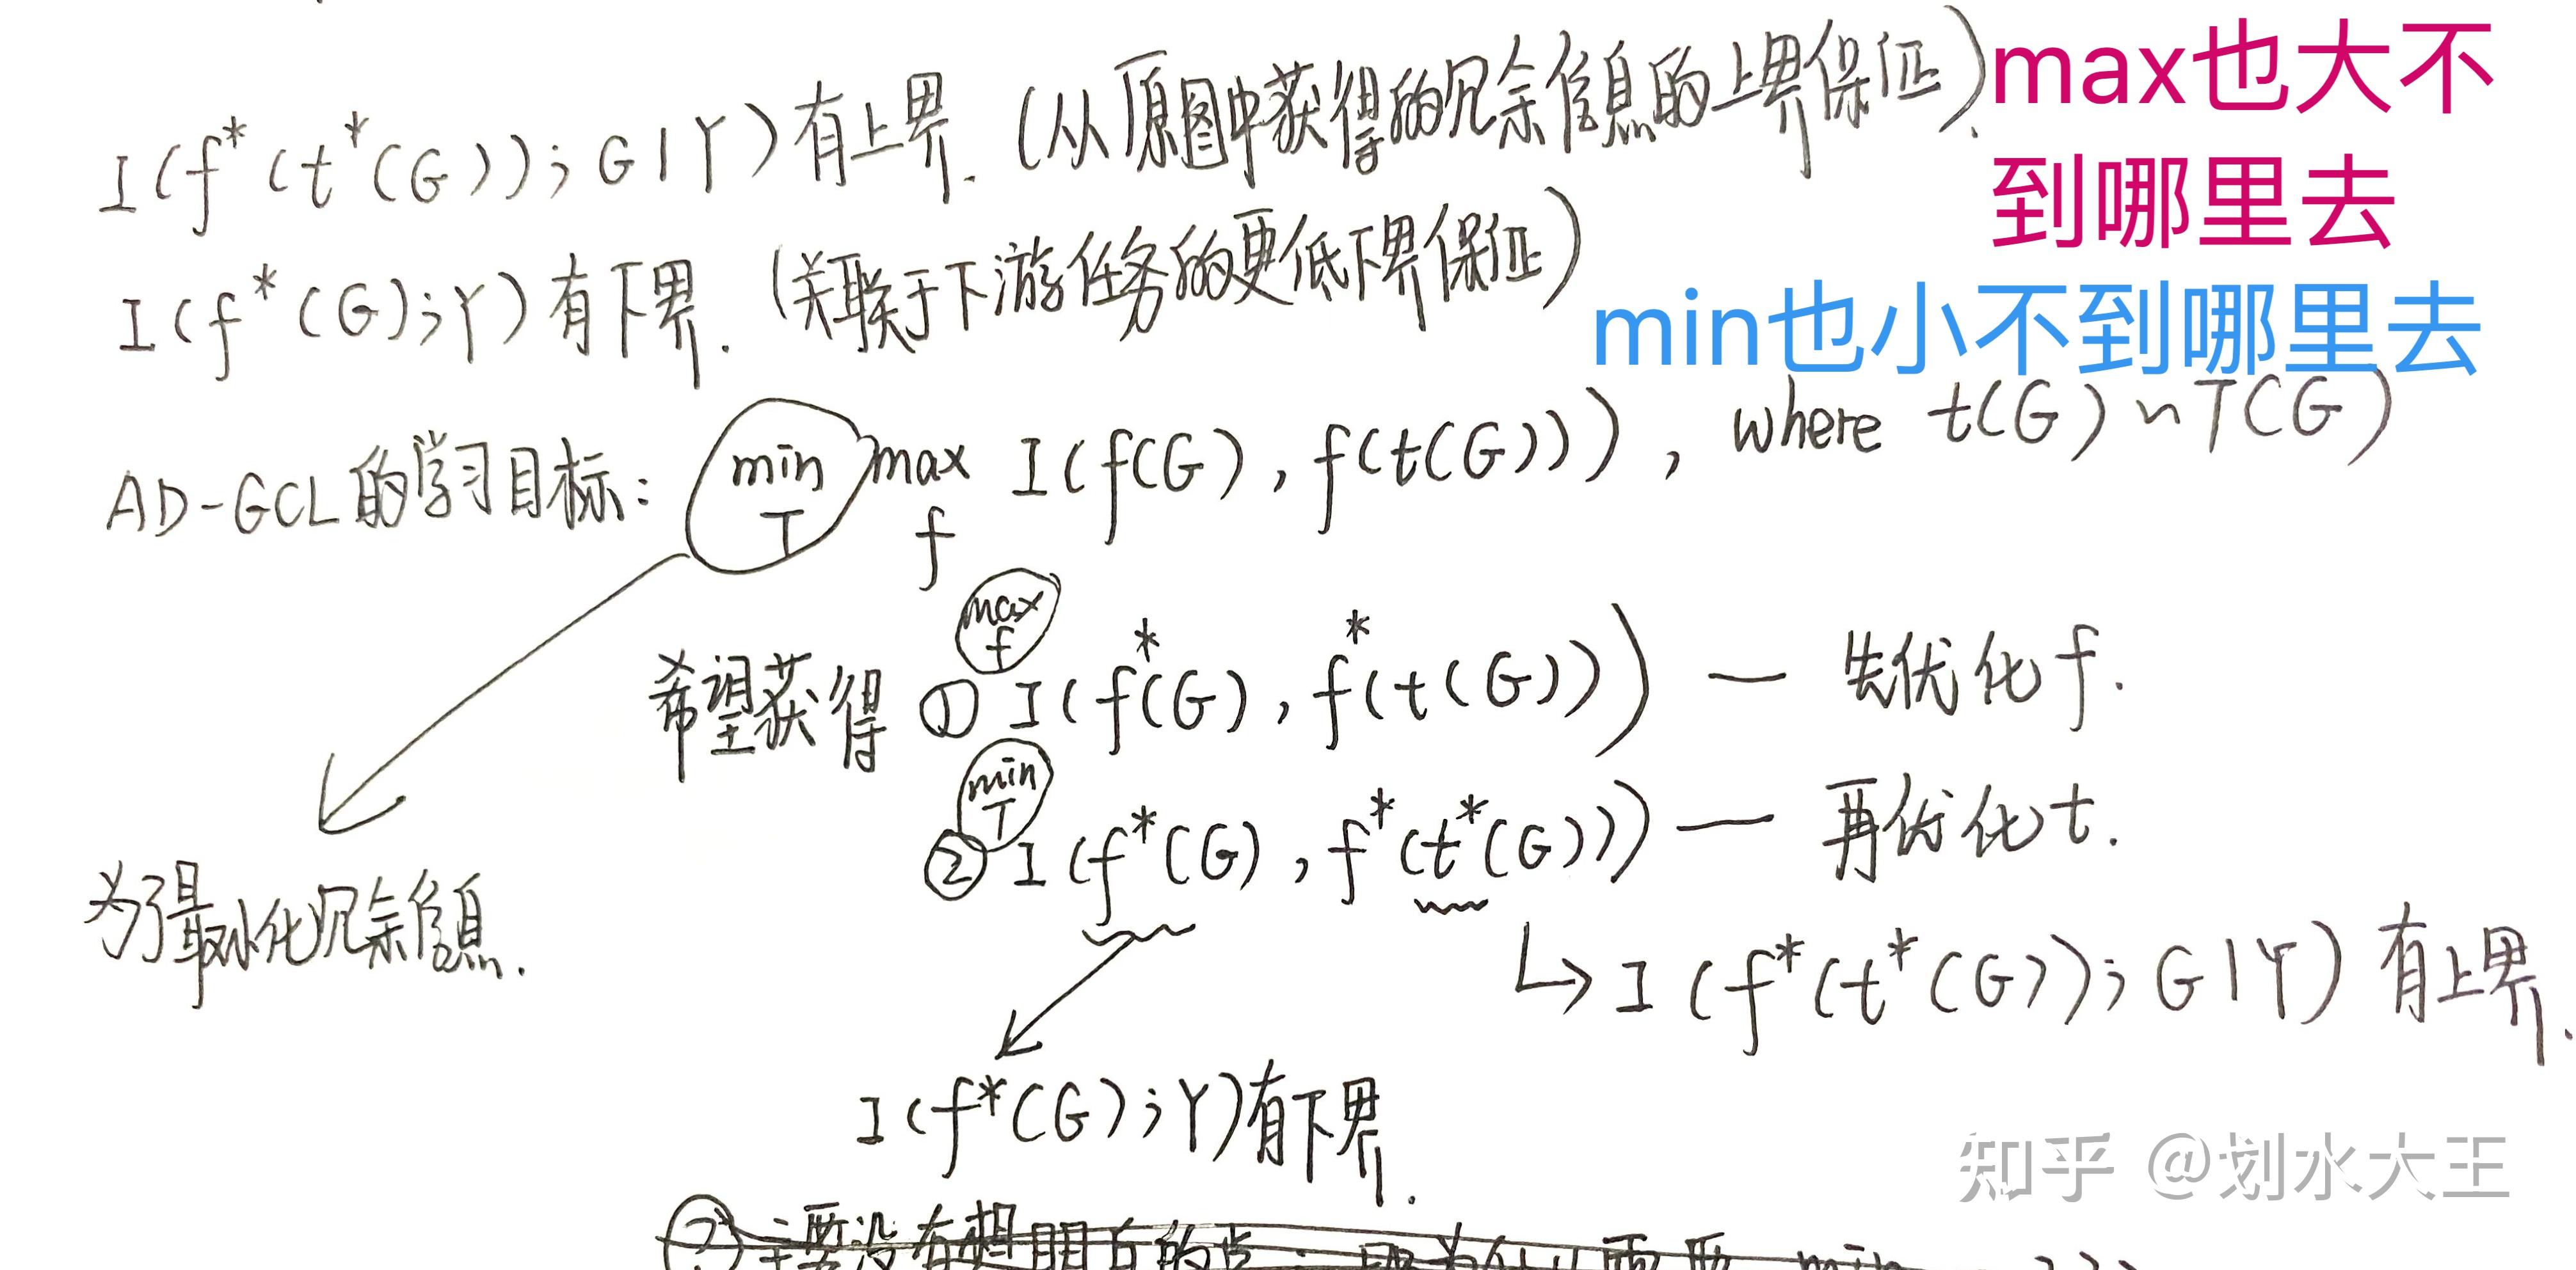 I(f*(t*(G));G|Y)有上界.(从原图中获得的冗余信息的上界保证).
max也大不
到哪里去
I(f*(G);Y)有下界.(关联于下游任务的更低下界保证)
min也小不到哪里去
AD-GCL的学习目标: min T max f I(f(G), f(t(G))), where t(G) ~ T(G)
max f
希望获得 ① I(f*(G), f*(t(G))) — 先优化f.
min T
② I(f*(G), f*(t*(G))) — 再优化t.
为了最小化冗余信息.
↳ I(f*(t*(G));G|Y) 有上界.
I(f*(G);Y)有下界.
知乎 @划水大王
主要没有想明白的点: 为什么需要 min